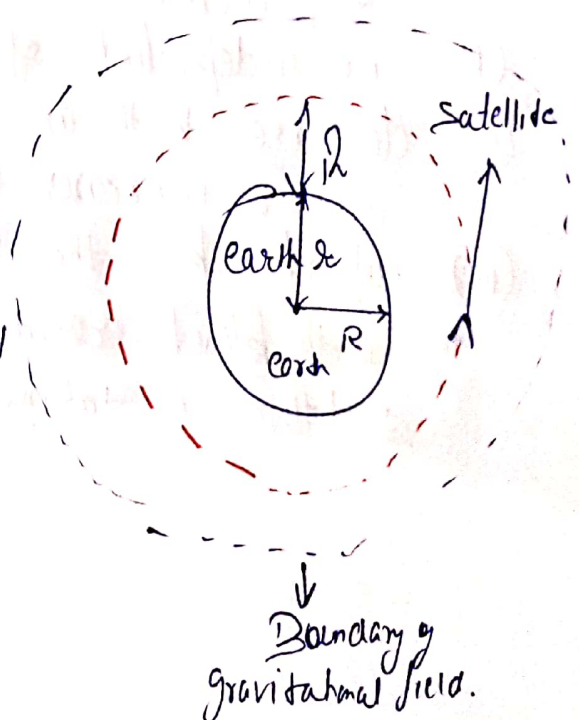 Satellite
h
earth r
R
earth
Boundary of
gravitational field.